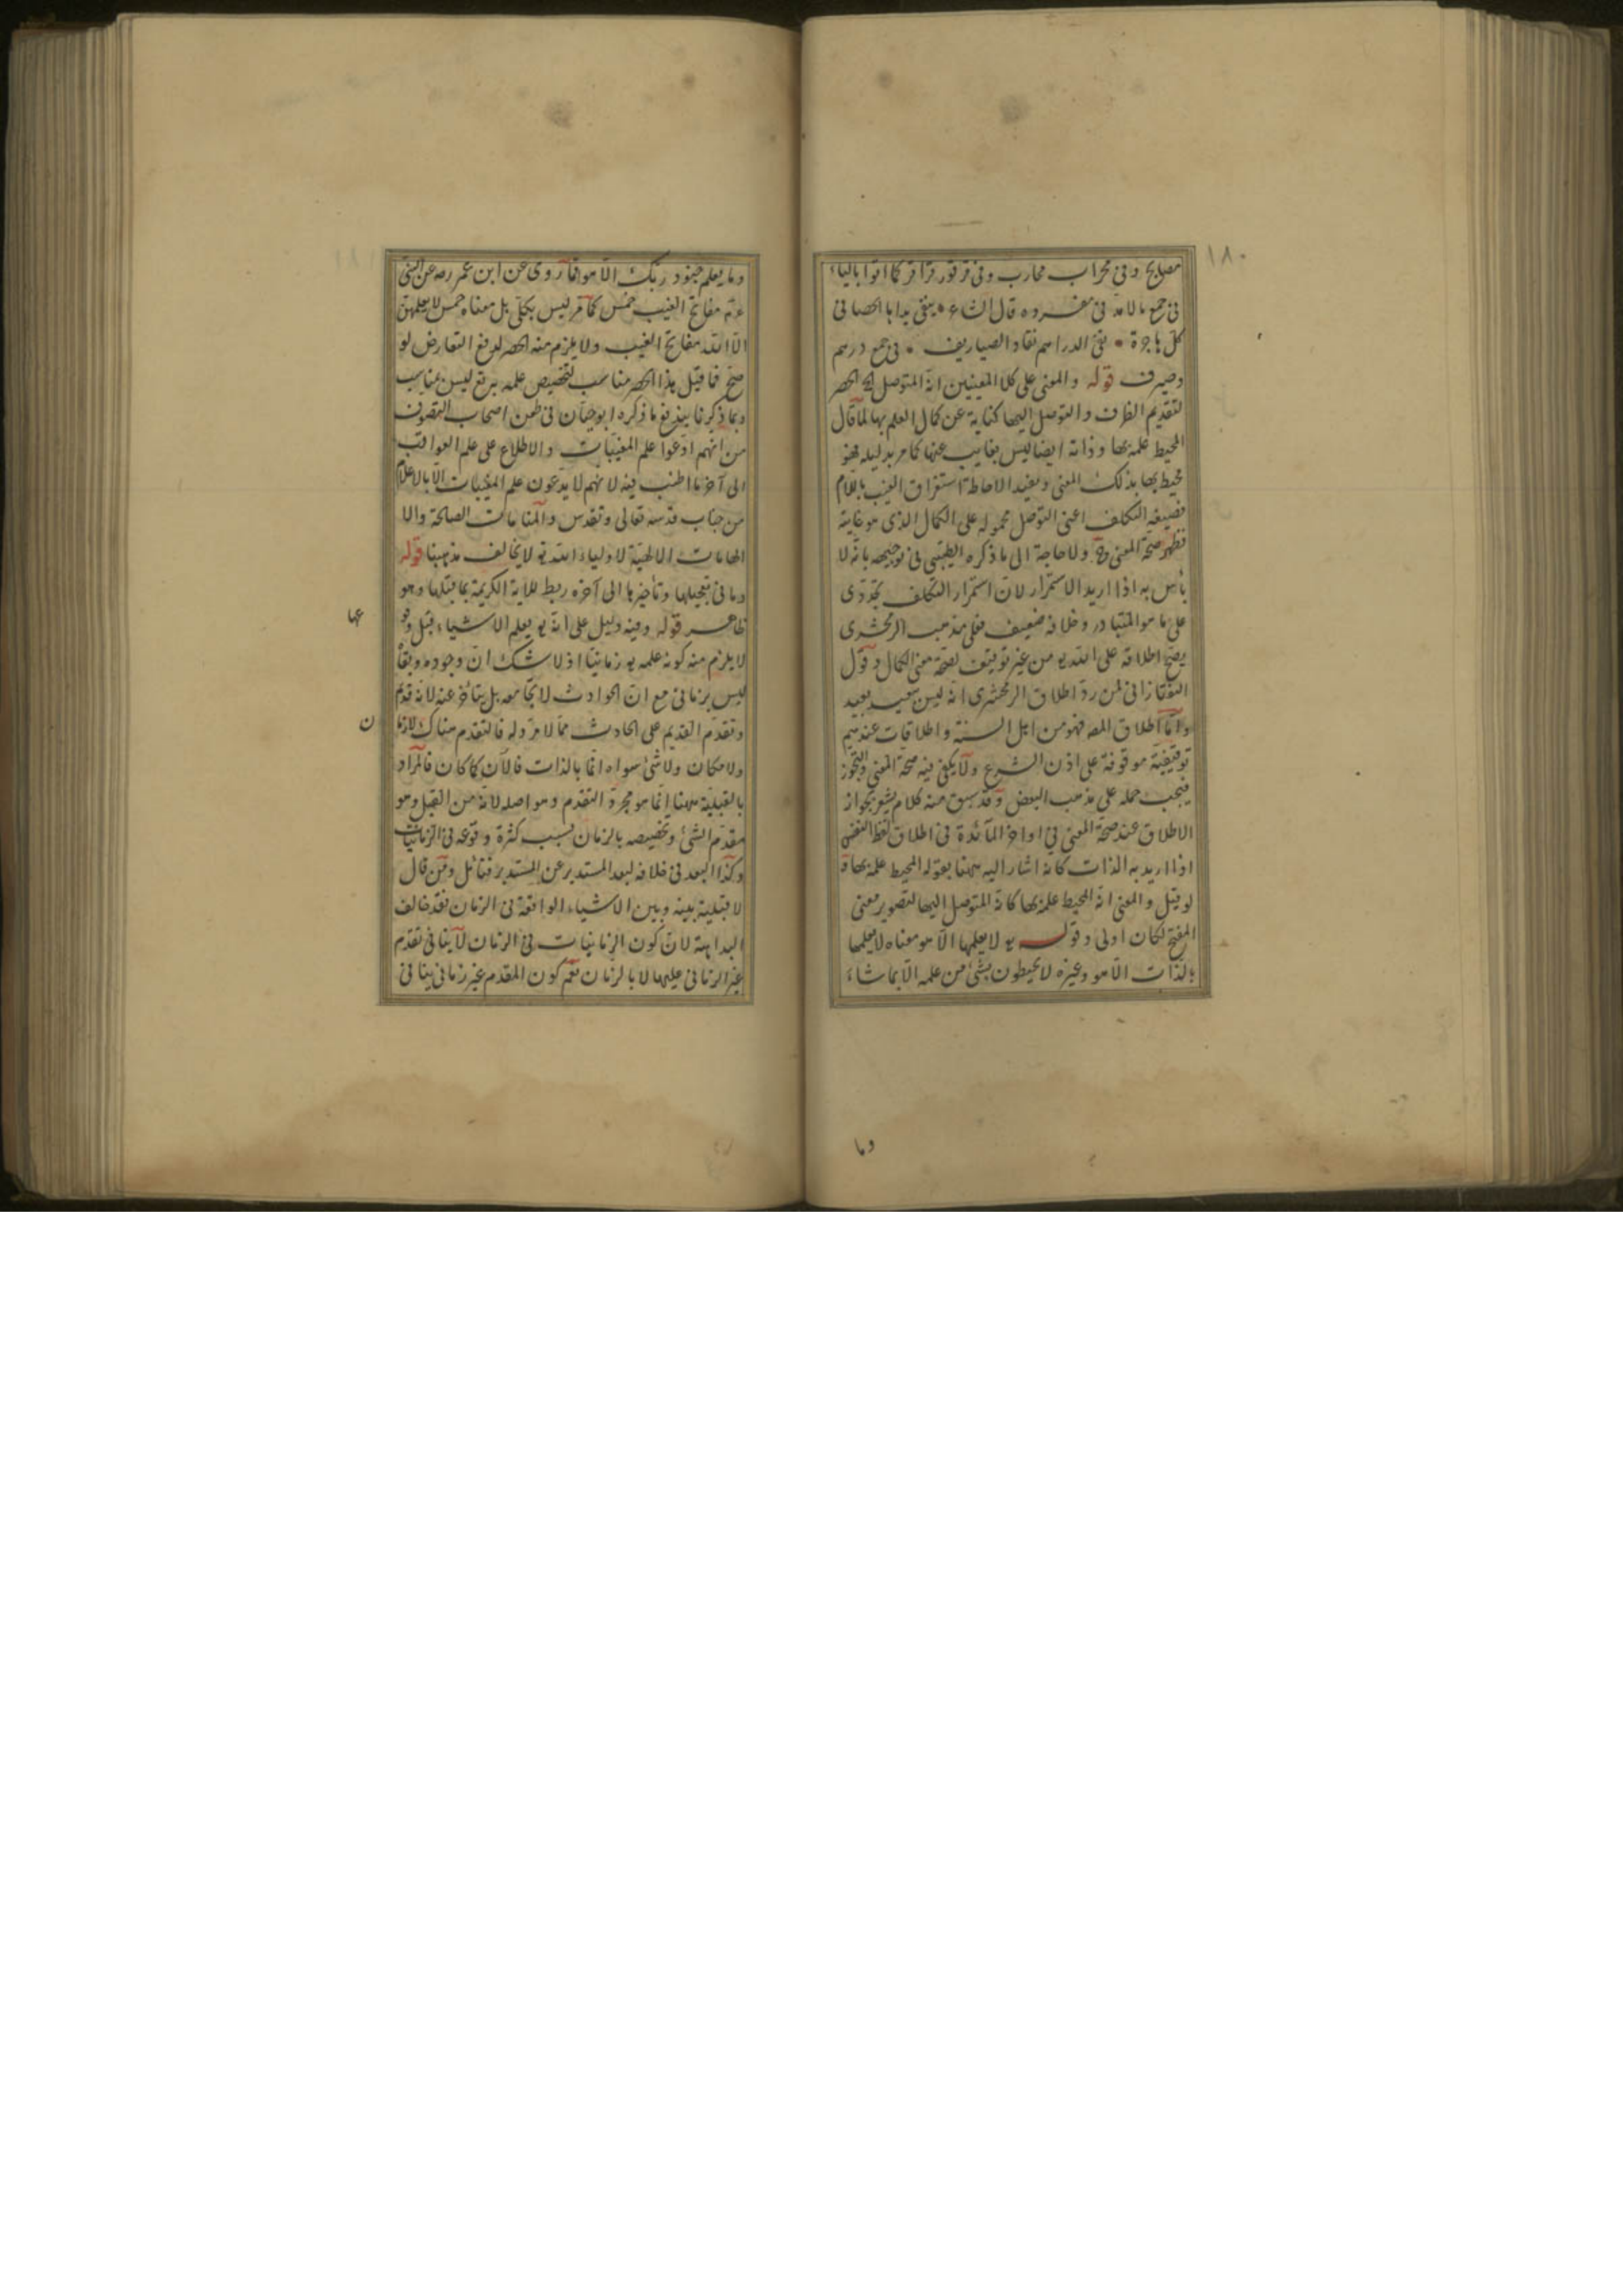 ١٨٠
مصلبح وفى محراب محارب وفى قرقور قراقر كما اتوا بالياء
فى جمع مالامد فى مفرده قال الشاع * ينفى يداها الحصا فى
كل هاجرة * نفى الدراهم نقاد الصياريف * فى جمع درهم
وصيرف قوله والمعنى على كلا المعنيين انه المتوصل الخ الحصر
لتقديم الظرف والتوصل اليها كناية عن كمال العلم بها لما قال
المحيط علمه بها وذاته ايضا ليس بغايب عنها كما مر بدليله فهو
محيط بها بذلك المعنى ويفيد الاحاطة استغراق الغيب باللام
فصيغه التكلف اعنى التوصل محموله على الكمال الذى هو غايته
فظهر صحة المعنى وح ولا حاجة الى ما ذكره الطيبى فى توجيهه بانه لا
بأس به اذا اريد الاستمرار لان استمرار التكلف تجددى
على ما هو المتبادر وخلافه ضعيف فعلى مذهب الزمخشرى
يصح اطلاقه على الله تعو من غير توقيف لصحة معنى الكمال وقول
التفتازانى لمن رد اطلاق الزمخشرى انه ليس بعيد
واما اطلاق المصه فهو من اهل السنة واطلاقات عندهم
توقيفية موقوفة على اذن الشرع ولا يكفى فيه صحة المعنى والتجوز
فيجب حمله على مذهب البعض وقد سبق منه كلام يشعر بجوازه
الاطلاق عند صحة المعنى فى اواخر المآئدة فى اطلاق لفظ النفس
اذا اريد به الذات كانه اشار اليه ههنا بقوله المحيط علمه بها و
لو قيل والمعنى انه المحيط علمه بها كانه المتوصل اليها لتصوير معنى
المفتح لكان اولى وقوله تعو لا يعلمها الا هو معناه لا يعلمها
بالذات الا هو وغيره لا يحيطون بشئ من علمه الا بما شاء
وما
وما يعلم جنود ربك الا هو فما روى عن ابن عمر رضه عن النبى
عم مفاتح الغيب خمس كما مر ليس بكلى بل معناه خمس لا يعلمهن
الا الله مفاتح الغيب ولا يلزم منه الحصر لدفع التعارض لو
صح فما قيل هذا الحصر مناسب لتخصيص علمه ليس بمناسب
وبما ذكرنا يندفع ما ذكره ابو حيان فى طعن اصحاب التصوف
من انهم ادعوا علم المغيبات والاطلاع على علم العواقب
الى آخر ما اطنب فيه لانهم لا يدعون علم المغيبات الا بالاعلام
من جناب قدسه تعالى وتقدس والمنامات الصالحة والا
الهامات الالهية لاولياء الله تعو لا يخالف مذهبنا قوله
وما فى تعجيلها وتأخيرها الى آخره ربط للآية الكريمة بما قبلها وهو
ظاهر قوله وفيه دليل على انه تعو يعلم الاشياء قبل وقو
عها
لا يلزم منه كونه علمه تعو زمانيا اذ لا شك ان وجوده وبقاه
ليس بزمانى مع ان الحوادث لا تجامعه بل يتأخر عنه لانه قدم
وتقدم القديم على الحادث مما لا مرد له فالتقدم هناك لا زما
ن
ولا مكان ولا شئ سواه انما بالذات فالآن كما كان فالمراد
بالقبلية ههنا انما هو مجرد التقدم وهو اصله لانه من القبل وهو
مقدم الشئ وتخصيصه بالزمان بسبب كثرة وقوعه فى الزمانيات
وكذا البعد فى خلافه لبعد المستدبر عن المستدبر فتأمل ومن قال
لا قبلية بينه وبين الاشياء الواقعة فى الزمان فقد خالف
البداهة لان كون الزمانيات فى الزمان لا ينافى تقدم
غير الزمانى عليها لا بالزمان نعم كون المقدم غير زمانى ينافى